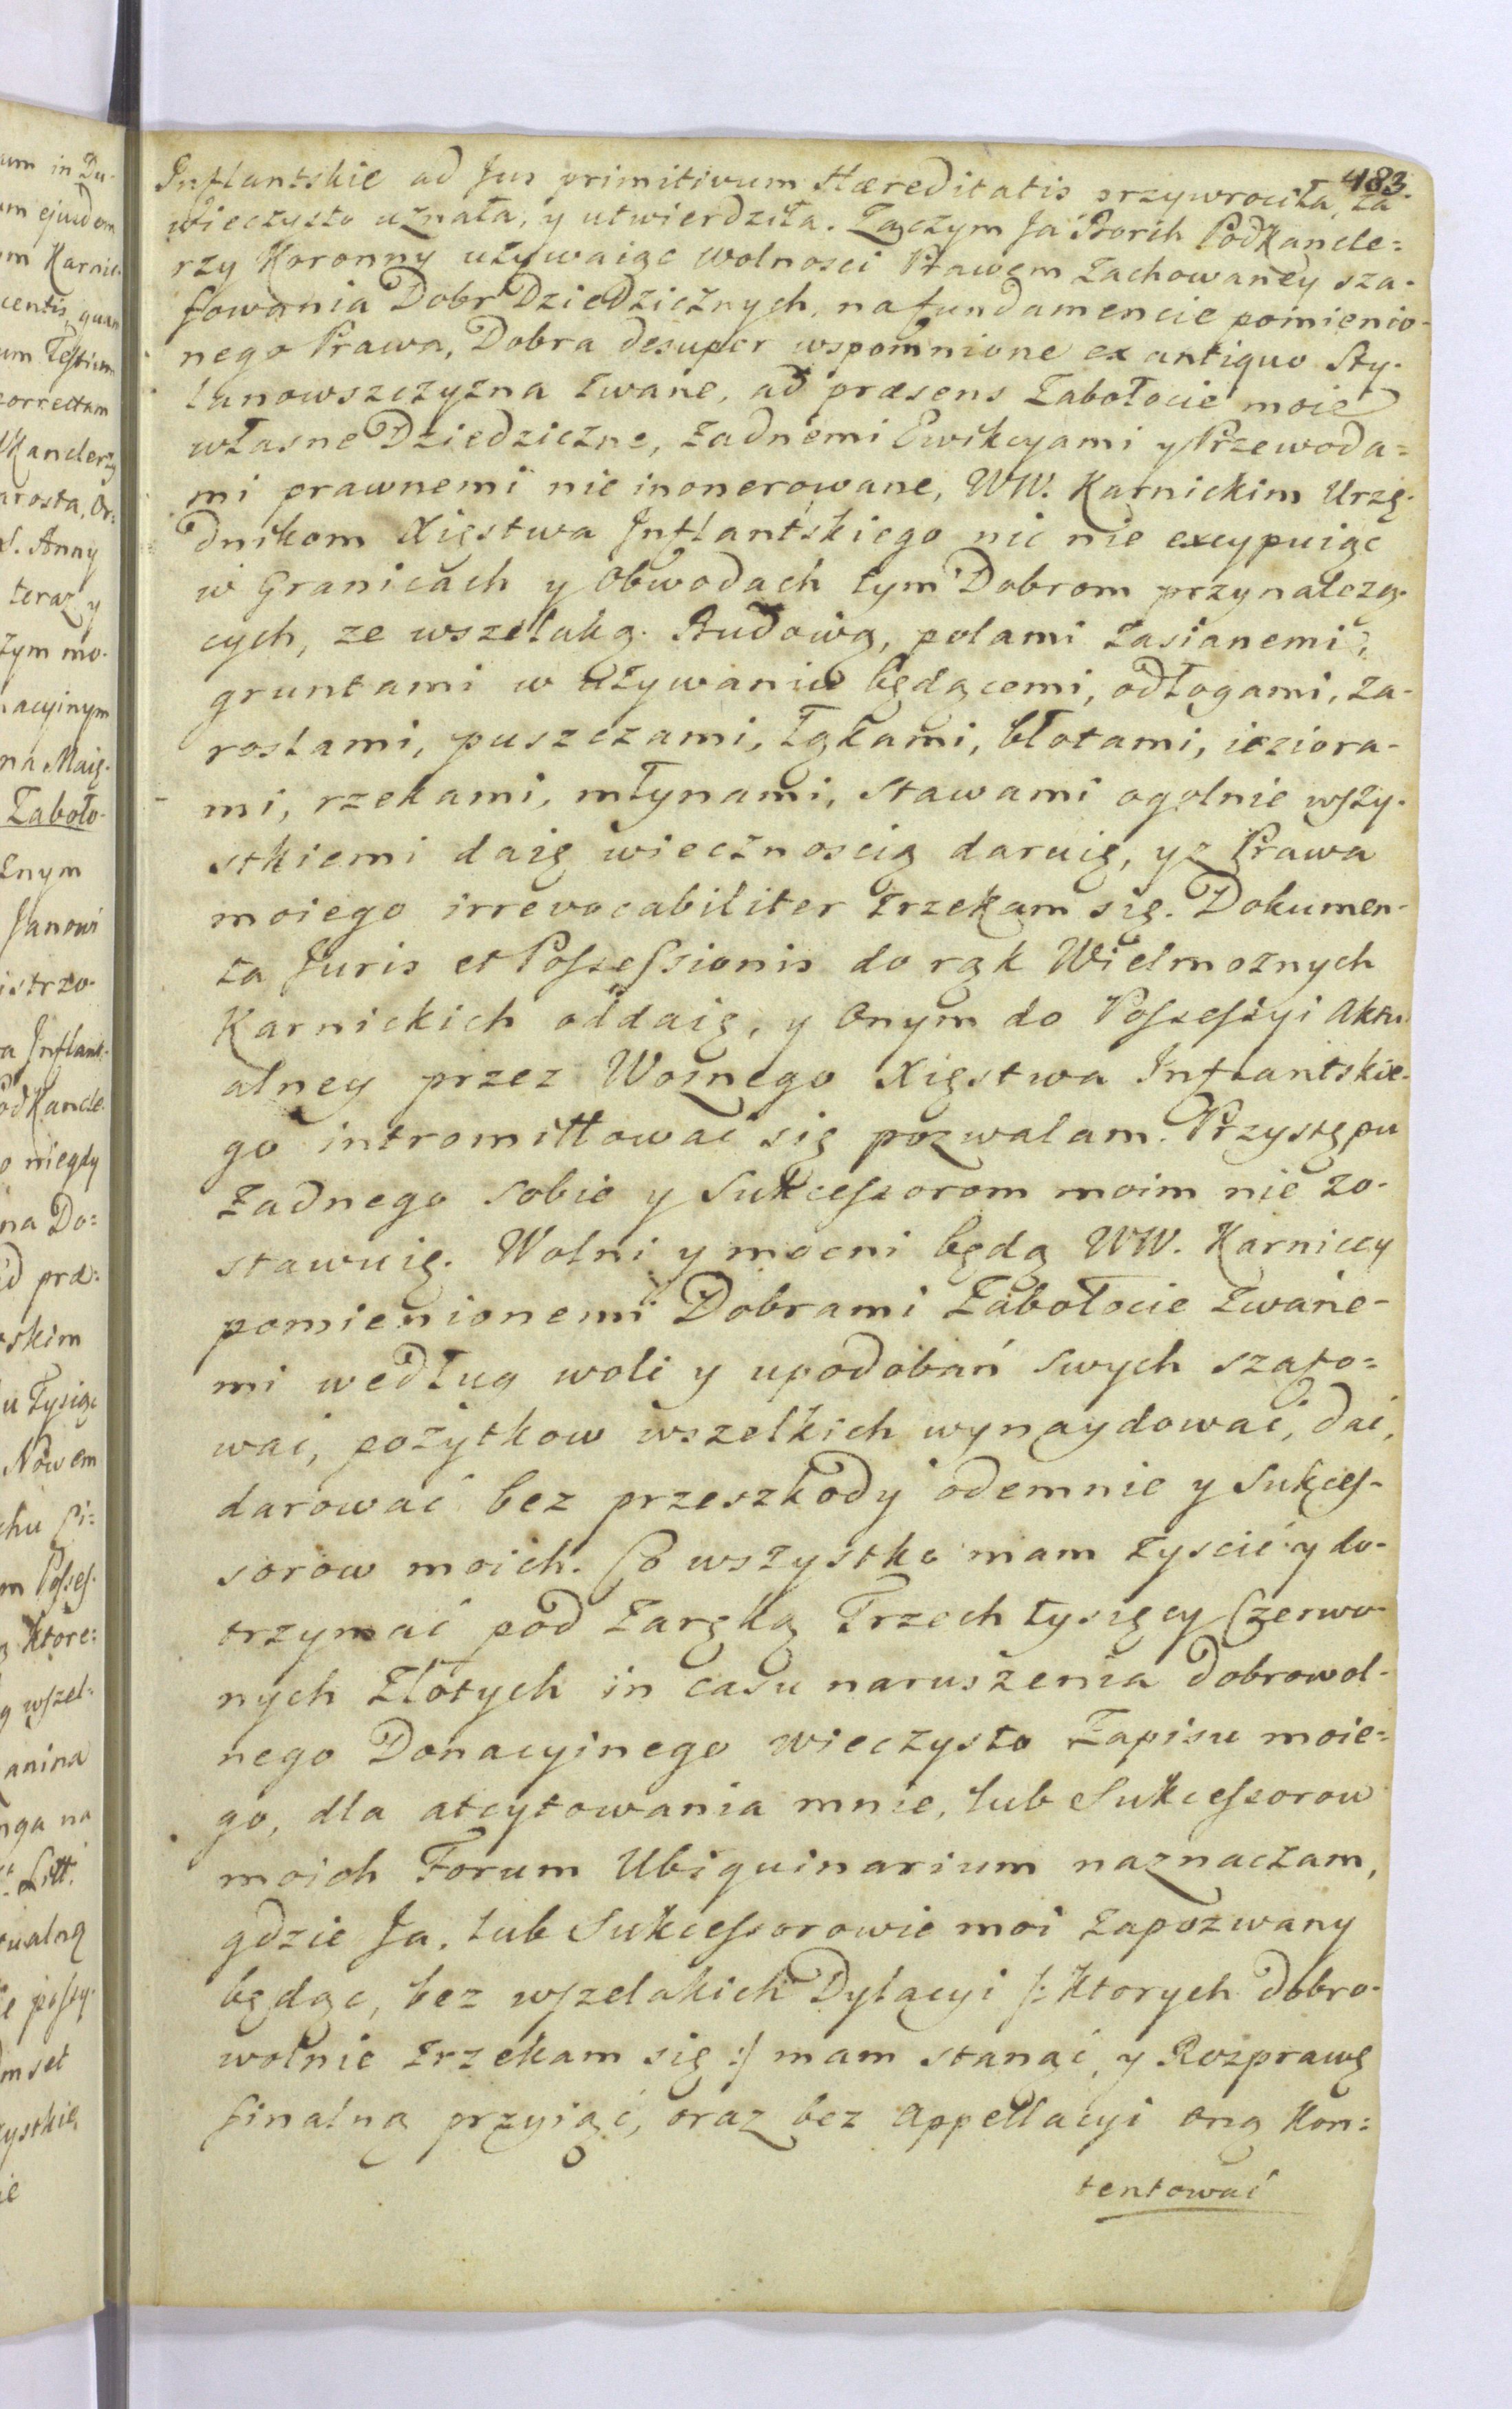 483.
Inflantskie ad Jus primitivum Hæreditatis przywrociła, za
wieczysto uznała, y utwierdziła. Zaczym Ja Borch PodKancle=
rzy Koronny używaiąc wolnosci Prawem Zachowaney sza-
fowania Dobr Dziedzicznych, na fundamencie pomienio-
nego Prawa, Dobra desuper wspomnione ex antiquo Sty-
lanowszczyzna zwane, ad præsens Zabołocie moie
własne Dziedziczne, żadnemi Ewikcyami y Przewoda=
mi prawnemi nie inonerowane, WW. Karnickim Urzę-
dnikom Xięstwa Inflantskiego nic nie excypuiąc
w Granicach y Obwodach tym Dobrom przynależą-
cych, ze wszelaką Budową, polami zasianemi,
gruntami w używaniu będącemi, odłogami, za-
roslami, puszczami, łąkami, błotami, ieziora-
mi, rzekami, młynami, stawami ogolnie wszy-
stkiemi daię wiecznoscią daruię, y z Prawa
moiego irrevocabiliter zrzekam się. Dokumen-
ta Juris et Possessionis do rąk Wielmoznych
Karnickich oddaię, y Onym do Possessyi Aktu-
alney przez Woznego Xięstwa Inflantskie-
go intromittować się pozwalam. Przystępu
Żadnego sobie y Sukcessorom moim nie zo-
stawuię. Wolni y mocni będą WW. Karniccy
pomienionemi Dobrami Zabołocie Zwane-
mi według woli y upodobań swych szafo=
wać, pożytkow wszelkich wynaydować, dać,
darować bez przeszkody odemnie y Sukces-
sorow moich. Co wszystko mam zyscić y do-
trzymać pod Zaręką Trzech tysięcy Czerwo-
nych Złotych in casu naruszenia dobrowol-
nego Donacyinego wieczysto Zapisu moie=
go, dla atcytowania mnie, lub Sukcessorow
moich Forum Ubiquinarium naznaczam,
gdzie Ja, lub Sukcessorowie moi zapozwany
będąc, bez wszelakich Dylacyi /: Ktorych dobro-
wolnie zrzekam się :/ mam stanąć, y Rozprawę
finalną przyiąć, oraz bez appellacyi oną Kon=
tentować